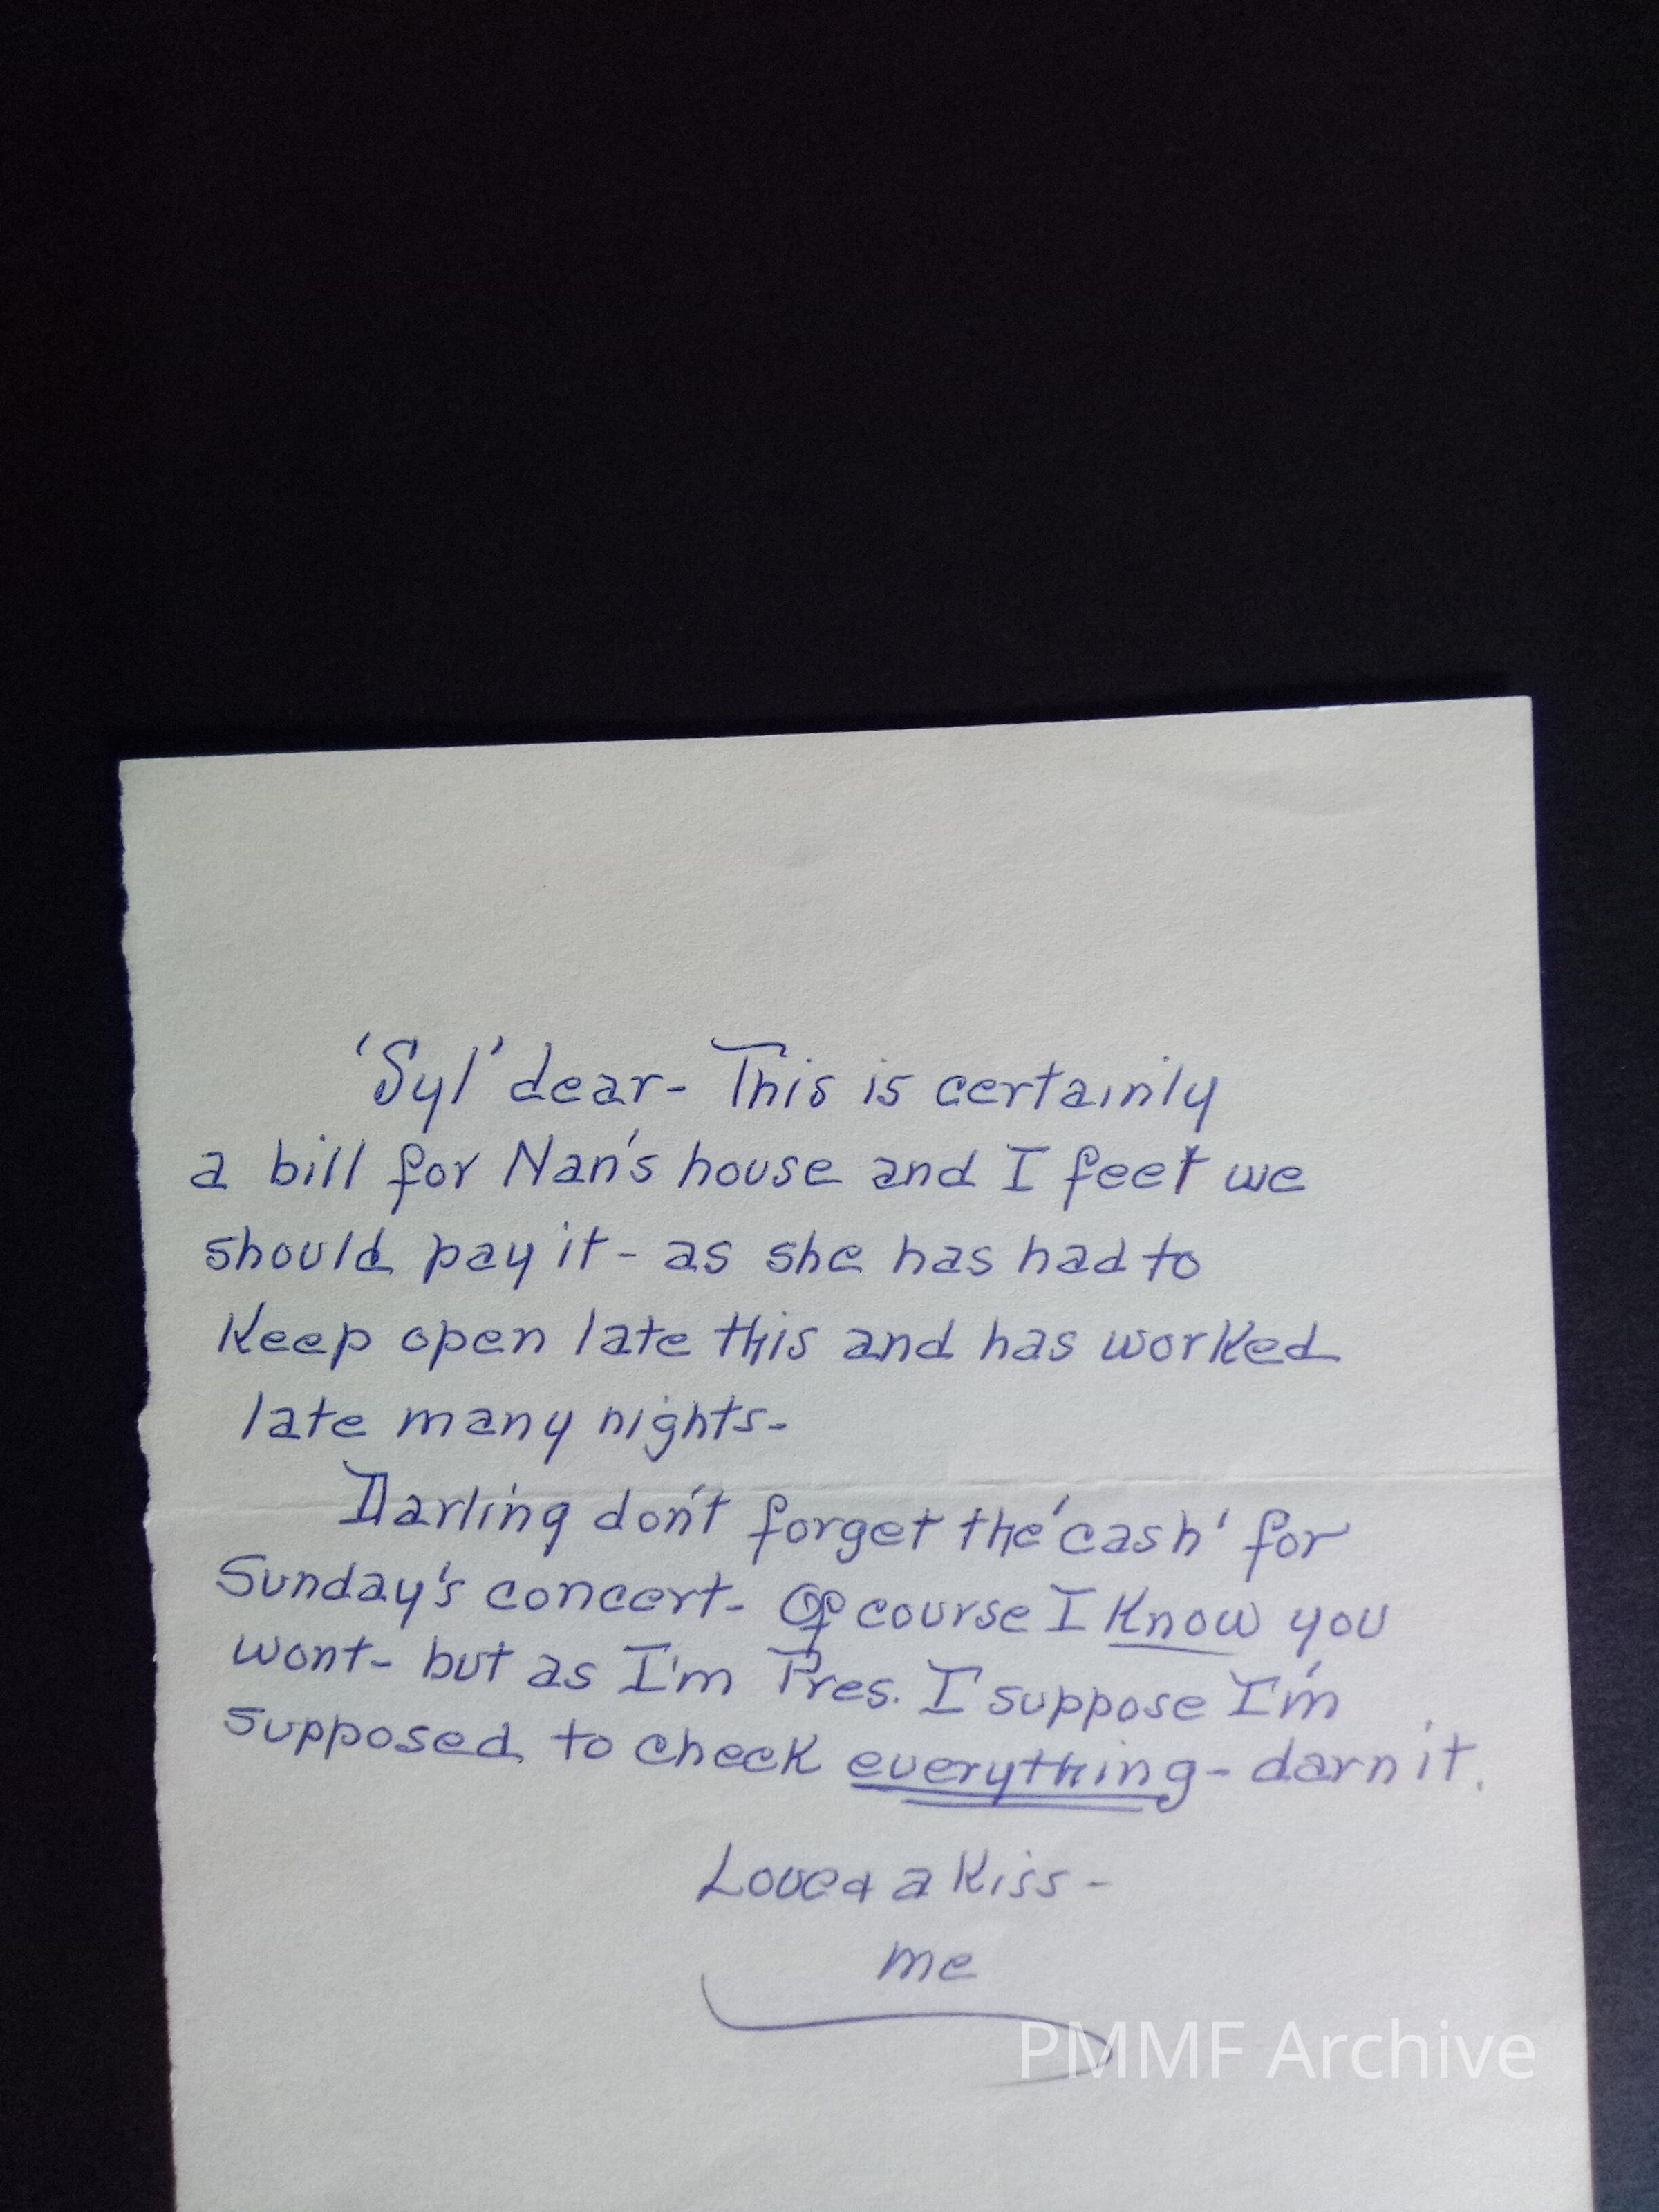 'Syl' dear- This is certainly
a bill for Nan's house and I feet we
should pay it - as she has had to
Keep open late this and has worked
late many nights-
Darling don't forget the 'cash' for
Sunday's concert- Of course I Know you
wont- but as I'm Pres. I suppose I'm
supposed to check everything - darn it.
Love & a Kiss -
me
PMMF Archive